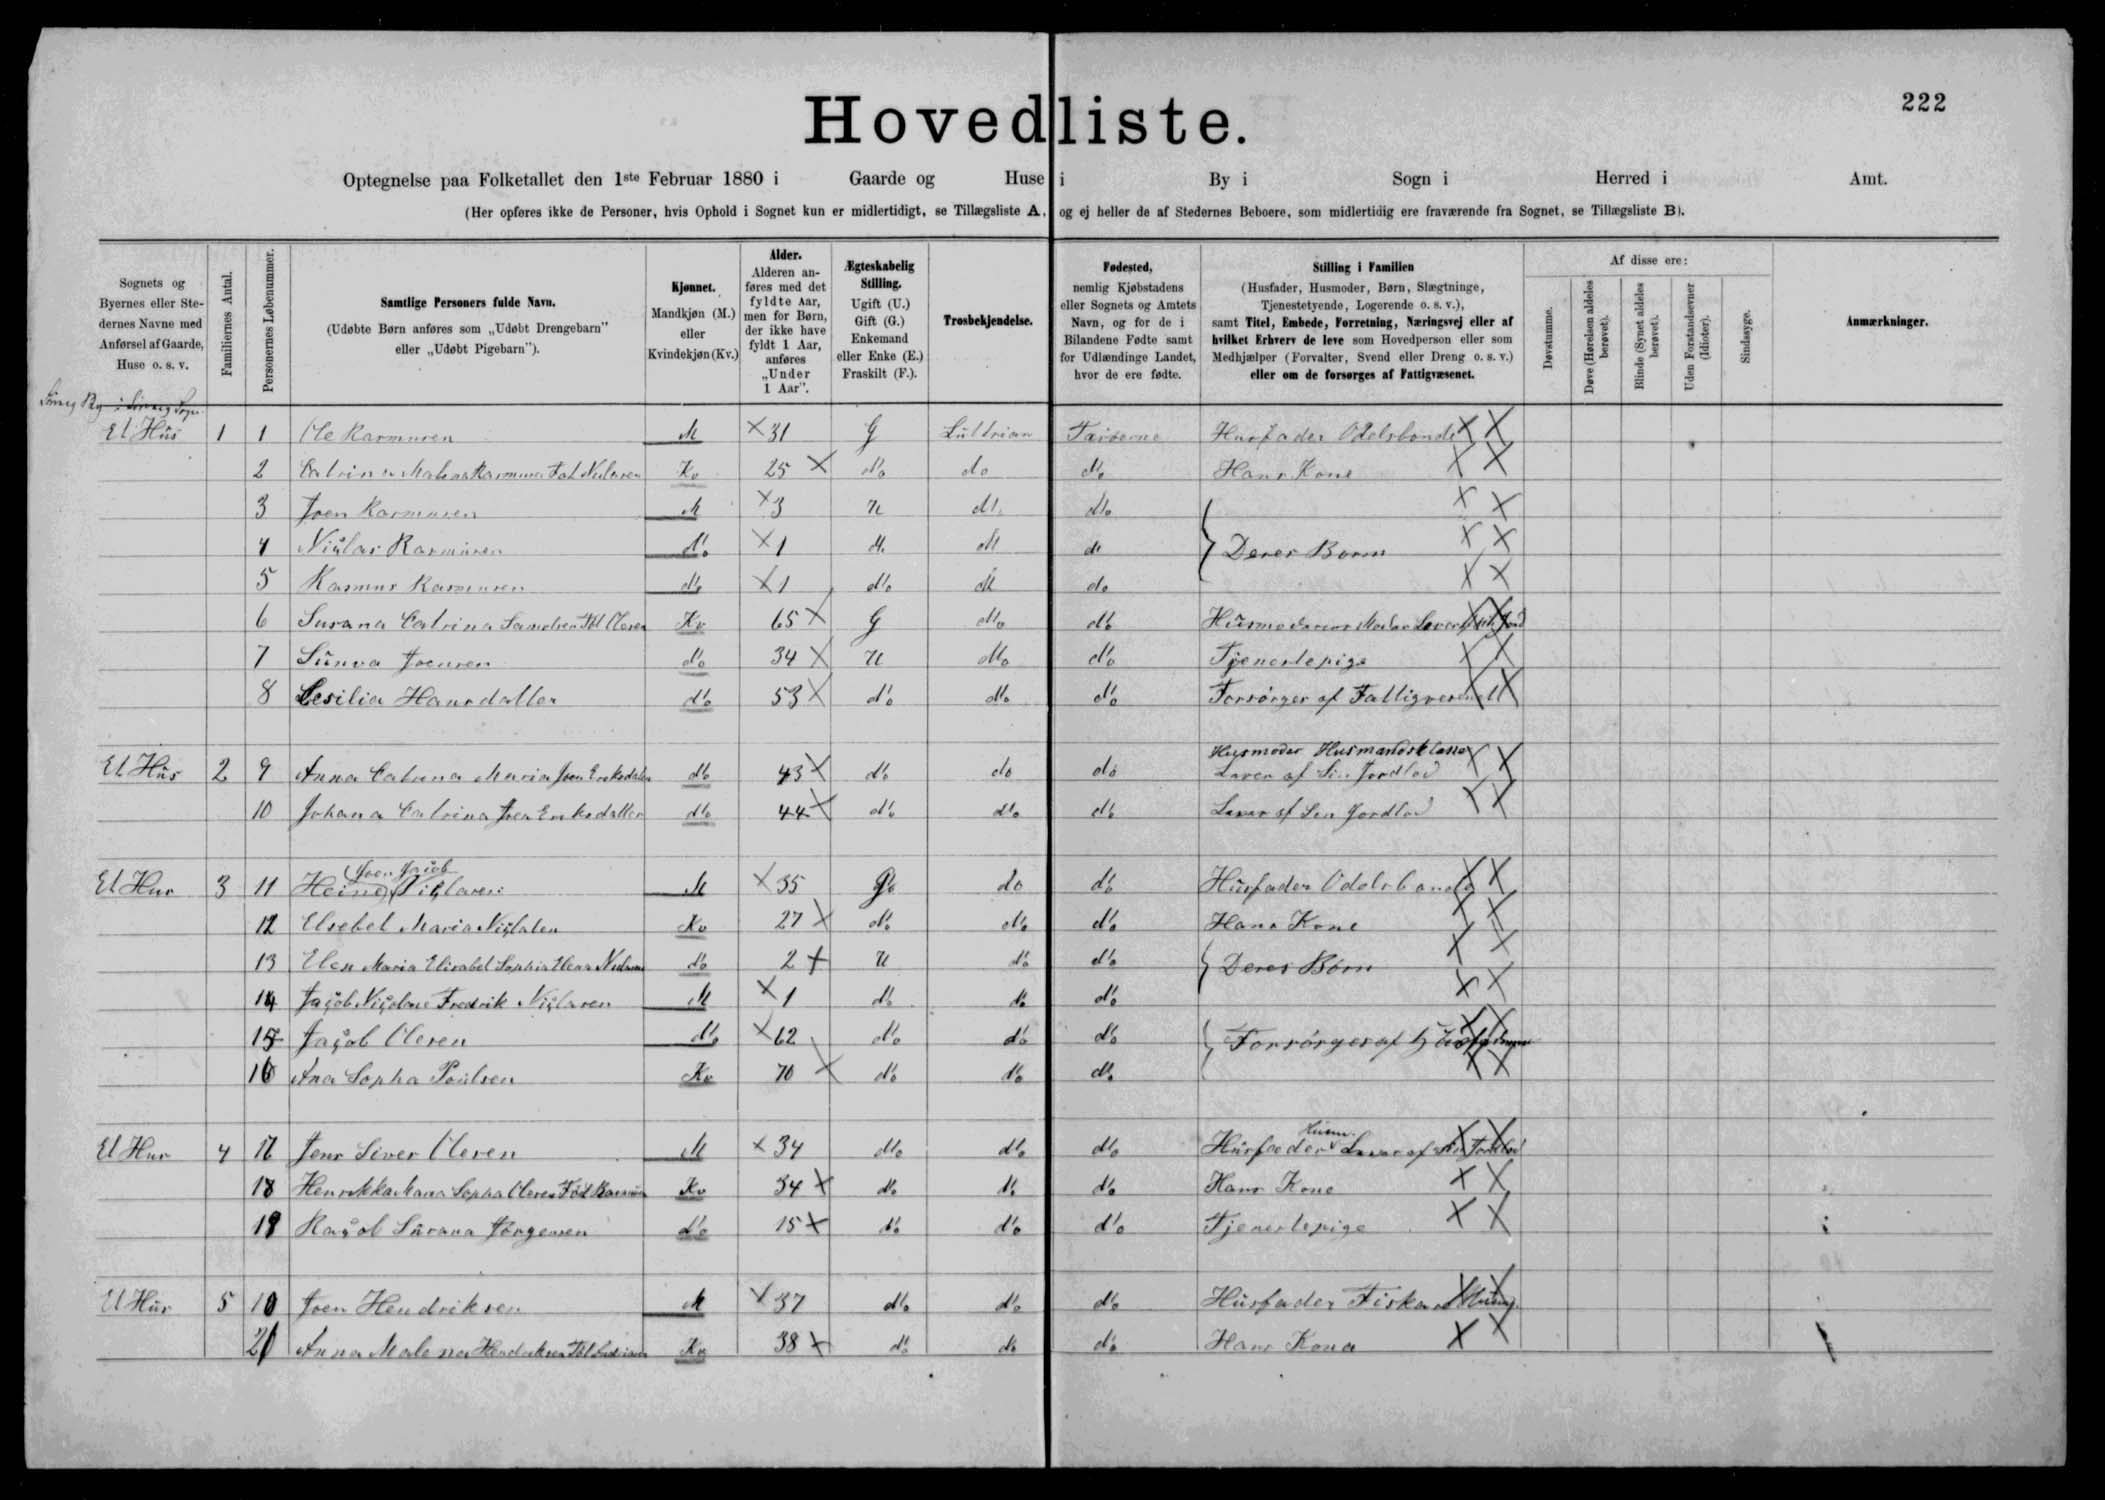 222
Hovedliste.
Optegnelse paa Folketallet den 1ste Februar 1880 i Gaarde og Huse i By i Sogn i Herred i Amt.
(Her opføres ikke de Personer, hvis Ophold i Sognet kun er midlertidigt, se Tillægsliste A, og ej heller de af Stedernes Beboere, som midlertidig ere fraværende fra Sognet, se Tillægsliste B).
Sognets og Byernes eller Stedernes Navne med Anførsel af Gaarde, Huse o. s. v.
Familiernes Antal.
Personernes Løbenummer.
Samtlige Personers fulde Navn.
(Udøbte Børn anføres som „Udøbt Drengebarn” eller „Udøbt Pigebarn”).
Kjønnet.
Mandkjøn (M.) eller Kvindekjøn (Kv.)
Alder.
Alderen anføres med det fyldte Aar, men for Børn, der ikke have fyldt 1 Aar, anføres „Under 1 Aar”.
Ægteskabelig Stilling.
Ugift (U.) Gift (G.) Enkemand eller Enke (E.) Fraskilt (F.).
Trosbekjendelse.
Fødested,
nemlig Kjøbstadens eller Sognets og Amtets Navn, og for de i Bilandene Fødte samt for Udlændinge Landet, hvor de ere fødte.
Stilling i Familien
(Husfader, Husmoder, Børn, Slægtninge, Tjenestetyende, Logerende o. s. v.),
samt Titel, Embede, Forretning, Næringsvej eller af hvilket Erhverv de leve som Hovedperson eller som Medhjælper (Forvalter, Svend eller Dreng o. s. v.) eller om de forsørges af Fattigvæsenet.
Af disse ere:
Døvstumme.
Døve (Hørelsen aldeles berøvet).
Blinde (Synet aldeles berøvet).
Uden Forstandsevner (Idioter).
Sindssyge.
Anmærkninger.
Et Hus 1 1 Ole Rasmusen M 31 G Luttrian Færøerne Husfader Odelsbonde
2 Catrina Malena Rasmusen Født Niclasen Kv 25 do do do Hans Kone
3 Joen Rasmusen M 3 U do do
4 Niclas Rasmusen do 1 do do do Deres Børn
5 Rasmus Rasmusen do 1 do do do
6 Susana Catrina Føt Olesen Kv 65 G do do
7 Sunva Joensen do 34 U do do Tjenestepige
8 Cesilia Hansdatter do 53 do do do Forsørges af Fattigvesenet
Et Hus 2 9 Anna Catrina Maria Joen Eriksdatter do 43 do do do Husmoder Husmandsklasse
Lever af Sin Jordlod
10 Johana Catrina Joen Eriksdatter do 44 do do do Lever af Sin Jordlod
Et Hus 3 11 Heine Joen Jacob Niclasen M 35 G do do Husfader Odelsbonde
12 Elsebet Maria Niclasen Kv 27 do do do Hans Kone
13 Elen Maria Elisabet Sophia Niclasen do 2 U do do Deres Børn
14 Jacob Fredrik Niclasen M 1 do do do
15 Jacob Olesen do 62 do do do Forsørges af
16 Ana Sopha Poulsen Kv 70 do do do
Et Hus 4 17 Jens Siver Olesen M 34 do do do Husfader Husm. Lever af sin Jordlod
18 Sopha Olesen Født Rasmusen Kv 34 do do do Hans Kone
19 Susana Jørgensen do 15 do do do Tjenestepige
Et Hus 5 Joen Hendriksen M 37 do do do Husfader Fisker
Anna Malena Hendriksen Kv 38 do do do Hans Kona